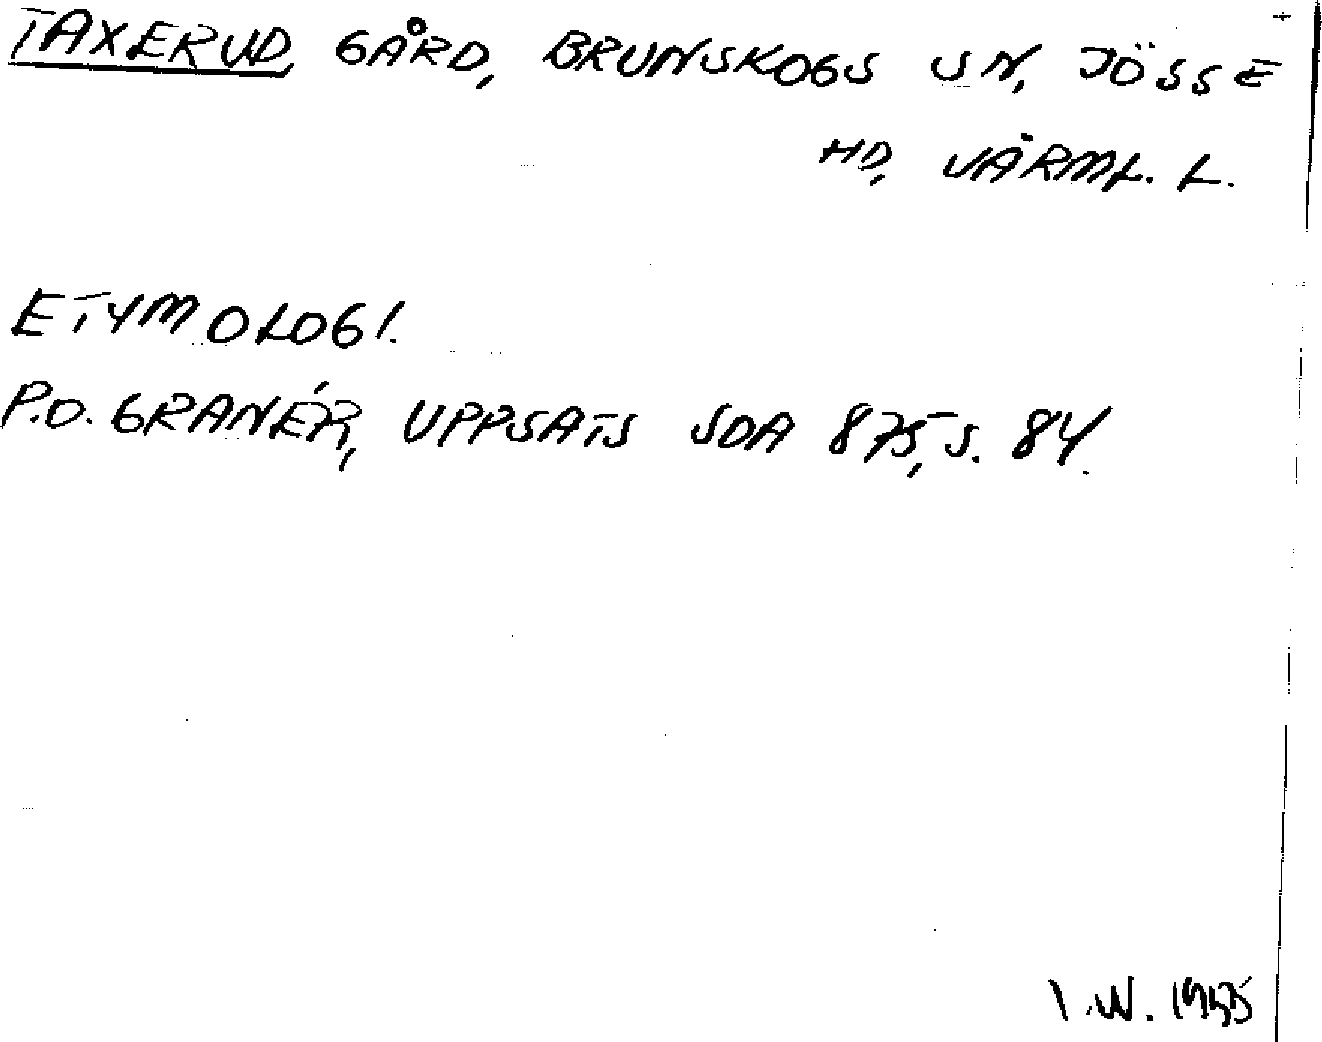 TAXERUD, GÅRD, BRUNSKOGS SN, JÖSSE
HD, VÄRML. L.
ETYMOLOGI.
P.O. GRANÉR, UPPSATS SOA 875, S. 84.
I.W. 1955